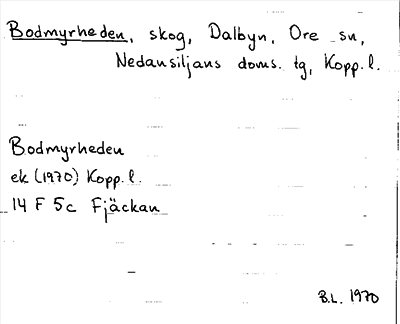 Bodmyrheden, skog, Dalbyn, Ore sn,
Nedansiljans doms. tg, Kopp. l.
Bodmyrheden
ek (1970) Kopp. l.
14 F 5c Fjäckan
B.L. 1970